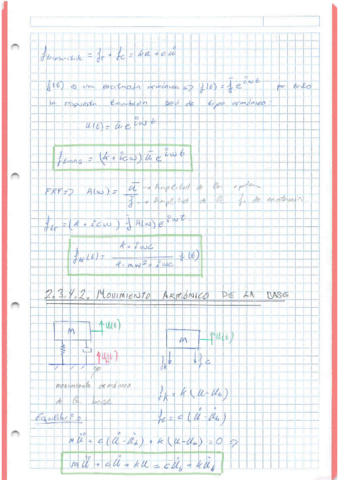 f transmitida = f_r + f_c = ku + cu̇
f(t) es una excitación armónica ⇒ f(t) = f̄ e^{iωt} por tanto
la respuesta también será de tipo armónica:
u(t) = ū e^{iωt}
f_trans = (k + icω) ū e^{iωt}
FRF ⇒ A(ω) = ū / f̄ → Amplitud de la
→ Amplitud de la f. de excitación
f_tr = (k + icω) f̄ A(ω) e^{iωt}
f_tr(t) = (k + iωc) / (k - mω² + iωc) f(t)
2.3.4.2. MOVIMIENTO ARMÓNICO DE LA BASE
m u(t)
u_b(t)
m u(t)
f_k f_c
movimiento armónico
de la base
f_k = k(u - u_b)
f_c = c(u̇ - u̇_b)
Equilibrio
mü + c(u̇ - u̇_b) + k(u - u_b) = 0 ⇒
mü + cu̇ + ku = cu̇_b + ku_b